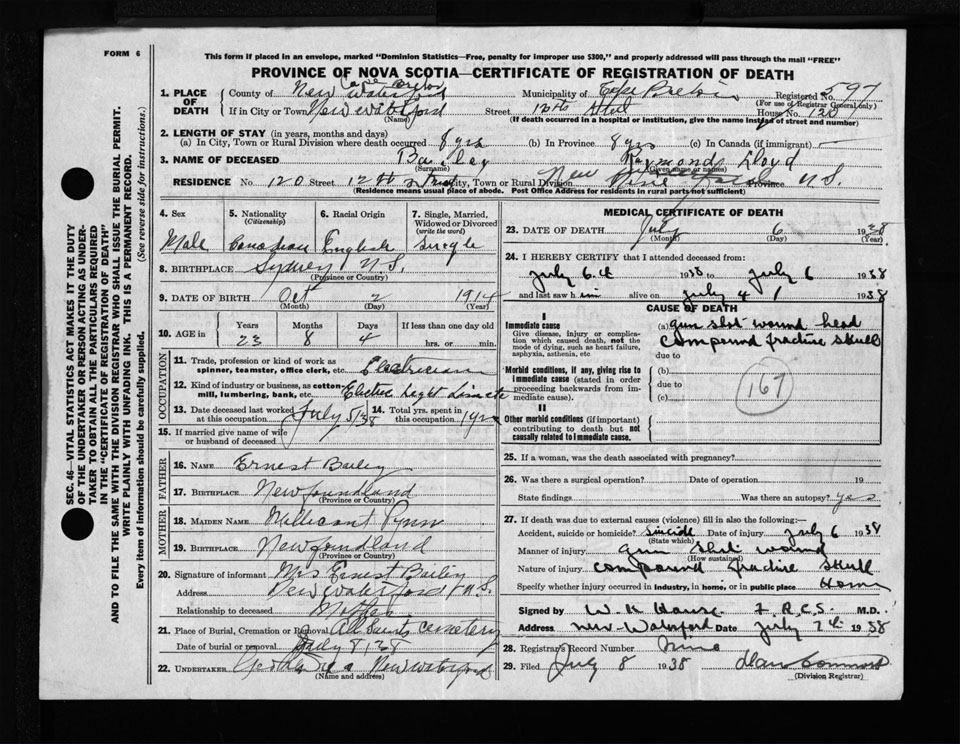 FORM 6
This form if placed in an envelope, marked "Dominion Statistics—Free, penalty for improper use $300," and properly addressed will pass through the mail "FREE"
PROVINCE OF NOVA SCOTIA—CERTIFICATE OF REGISTRATION OF DEATH
SEC. 46—VITAL STATISTICS ACT MAKES IT THE DUTY
OF THE UNDERTAKER OR PERSON ACTING AS UNDER-
TAKER TO OBTAIN ALL THE PARTICULARS REQUIRED
IN THE "CERTIFICATE OF REGISTRATION OF DEATH"
AND TO FILE THE SAME WITH THE DIVISION REGISTRAR WHO SHALL ISSUE THE BURIAL PERMIT.
WRITE PLAINLY WITH UNFADING INK. THIS IS A PERMANENT RECORD.
Every item of information should be carefully supplied. (See reverse side for instructions.)
1. PLACE OF DEATH
County of Cape Breton New Waterford Municipality of Cape Breton Registered No. 597
(For use of Registrar General only)
If in City or Town New Waterford Street 12th Street House No. 120
(Name) (If death occurred in a hospital or institution, give the name instead of street and number)
2. LENGTH OF STAY (in years, months and days)
(a) In City, Town or Rural Division where death occurred 8 yrs (b) In Province 8 yrs (c) In Canada (if immigrant) —
3. NAME OF DECEASED Bailey Raymond Lloyd
(Surname) (Given name or names)
RESIDENCE No. 120 Street 12th Street City, Town or Rural Division New Province N.S.
(Residence means usual place of abode. Post Office Address for residents in rural parts not sufficient)
4. Sex Male
5. Nationality (Citizenship) Canadian
6. Racial Origin English
7. Single, Married, Widowed or Divorced (write the word) Single
8. BIRTHPLACE Sydney N.S.
(Province or Country)
9. DATE OF BIRTH Oct 2 1914
(Month) (Day) (Year)
10. AGE in Years Months Days If less than one day
23 8 4 hrs. or min.
OCCUPATION
11. Trade, profession or kind of work as spinner, teamster, office clerk, etc. Electrician
12. Kind of industry or business, as cotton mill, lumbering, bank, etc. Electric Light
13. Date deceased last worked at this occupation July 5/38
14. Total yrs. spent in this occupation 1 yrs
15. If married give name of wife or husband of deceased
FATHER
16. NAME Ernest Bailey
17. BIRTHPLACE Newfoundland
(Province or Country)
MOTHER
18. MAIDEN NAME Millicent Pynn
19. BIRTHPLACE Newfoundland
(Province or Country)
20. Signature of informant Mrs Ernest Bailey
Address New Waterford N.S.
Relationship to deceased Mother
21. Place of Burial, Cremation or Removal All Saints Cemetery
Date of burial or removal July 8, 38
22. UNDERTAKER New Waterford
(Name and address)
MEDICAL CERTIFICATE OF DEATH
23. DATE OF DEATH July 6 1938
(Month) (Day) (Year)
24. I HEREBY CERTIFY that I attended deceased from:
July 6th 1938 to July 6 1938
and last saw him alive on July 4 1938
CAUSE OF DEATH
I
Immediate cause
Give disease, injury or complication which caused death, not the mode of dying, such as heart failure, asphyxia, asthenia, etc
(a) gun shot wound head
compound fracture skull
due to
Morbid conditions, if any, giving rise to immediate cause (stated in order proceeding backwards from immediate cause).
(b)
due to
(c)
167
II
Other morbid conditions (if important) contributing to death but not causally related to immediate cause.
25. If a woman, was the death associated with pregnancy?
26. Was there a surgical operation? Date of operation 19
State findings Was there an autopsy? yes
27. If death was due to external causes (violence) fill in also the following:—
Accident, suicide or homicide? Suicide Date of injury July 6 1938
(State which)
Manner of injury gun shot wound
(How sustained)
Nature of injury compound fracture skull
Specify whether injury occurred in industry, in home, or in public place Home
Signed by W. K. House F.R.C.S. M.D.
Address New Waterford Date July 7th 1938
28. Registrar's Record Number Nine
29. Filed July 8 1938
(Division Registrar)